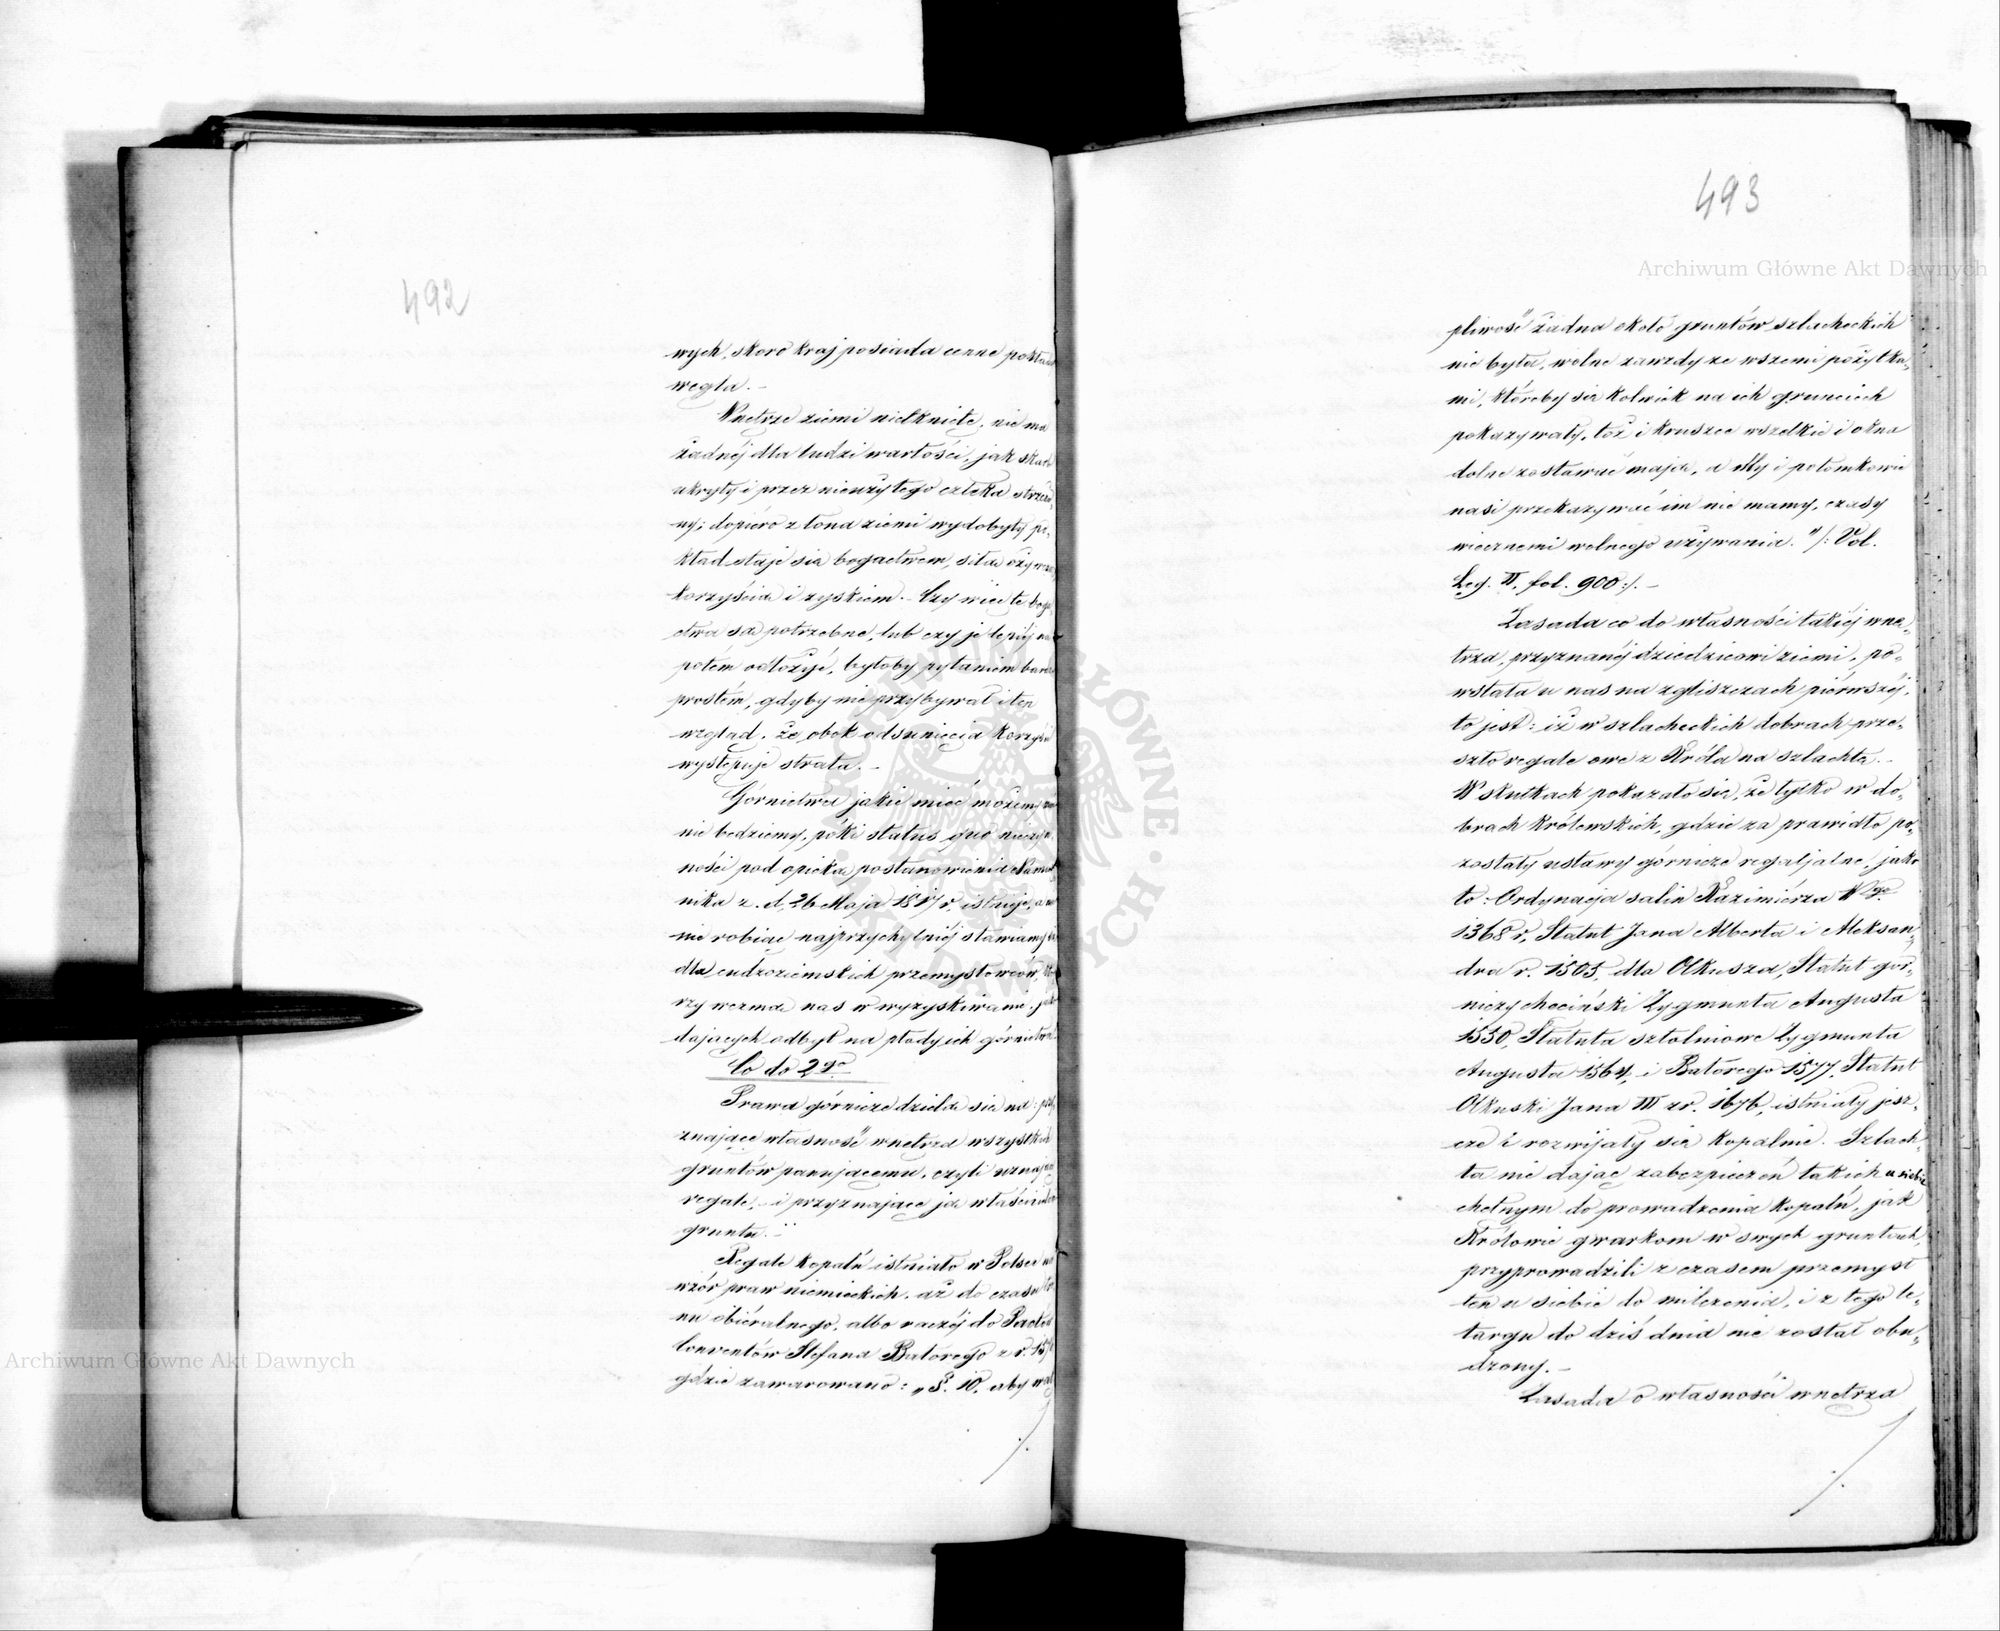 492
wych, skoro kraj posiada cenne pokła
węgla. –
Wnętrze ziemi nietknięte, nie ma
żadnéj dla ludzi wartości, jak skarb
ukryty i przez nieużytego człeka strzeżo-
ny; dopiéro z łona ziemi wydobyty po-
kład staje się bogactwem, siłą ożywcz
korzyścią i zyskiem. – Czy więc te boga
ctwa są potrzebne, lub czy je lepiéj na
potém odłożyć, byłoby pytaniem bardz
prostém, gdyby nie przybywał i ten
wzgląd, że obok odsunięcia korzyści
występuje strata. –
Górnictwa jakie mieć możemy
nie będziemy, póki status quo nieczyn
ności pod opieką postanowienia Namiest
nika z d. 26 Maja 1817 r. istnieje, a
nic robiąc najprzychylniéj stawiamy
dla cudzoziemskich przemysłowców, któ
rzy wezmą nas w wyzyskiwanie, jako
dających odbyt na płody ich górnictwa
Co do 2go
Prawa górnicze dzielą się na: przy
znające własność wnętrza wszystkich
gruntów panującemu, czyli uznając
regale, – i przyznające ją właścicielo
gruntu. –
Regale kopalń istniało w Polsce na
wzór praw niemieckich, aż do czasu tro
nu obiéralnego, albo raczéj do Paktów
Conventów Stefana Batorego z r. 157
gdzie zawarowano: „§. 10. aby wąt
./.
493
Archiwum Główne Akt Dawnych
pliwość żadna około gruntów szlacheckich
nie była, wolne zawżdy ze wszemi pożytka-
mi, któreby się kolwiek na ich grunciech
pokazywały, toż i kruszce wszelkie i okna
dolne zostawać mają, a My i potomkowie
nasi przekazywać im nie mamy, czasy
wiecznemi wolnego używania." /: Vol.
Leg. II, fol. 900 :/. –
Zasada co do własności takiéj wnę-
trza, przyznanéj dziedzicowi ziemi, po-
wstała u nas na zgliszczach piérwszéj,
to jest: iż w szlacheckich dobrach prze-
szło regale owe z Króla na szlachtę. –
W skutkach pokazało się, że tylko w do-
brach Królewskich, gdzie za prawidło po-
zostały ustawy górnicze regaljalne, jako
to: Ordynacja salin Kazimiérza Wgo
1368 r., Statut Jana Alberta i Aleksan-
dra r. 1505, dla Olkusza, Statut gór-
niczy chęciński Zygmunta Augusta
1550, Statuta sztolniowe Zygmunta
Augusta 1564, i Batorego 1577, Statut
Olkuski Jana III z r. 1676, istniały jesz-
cze i rozwijały się kopalnie. Szlach-
ta nie dając zabezpieczeń takich u siebie
chętnym do prowadzenia kopalń, jak
Królowie gwarkom w swych gruntach,
przyprowadzili z czasem przemysł
ten u siebie do milczenia, i z tego le-
targu do dziś dnia nie został obu-
dzony. –
Zasada o własności wnętrza
./.
Archiwum Główne Akt Dawnych
ARCHIWUM GŁÓWNE AKT DAWNYCH